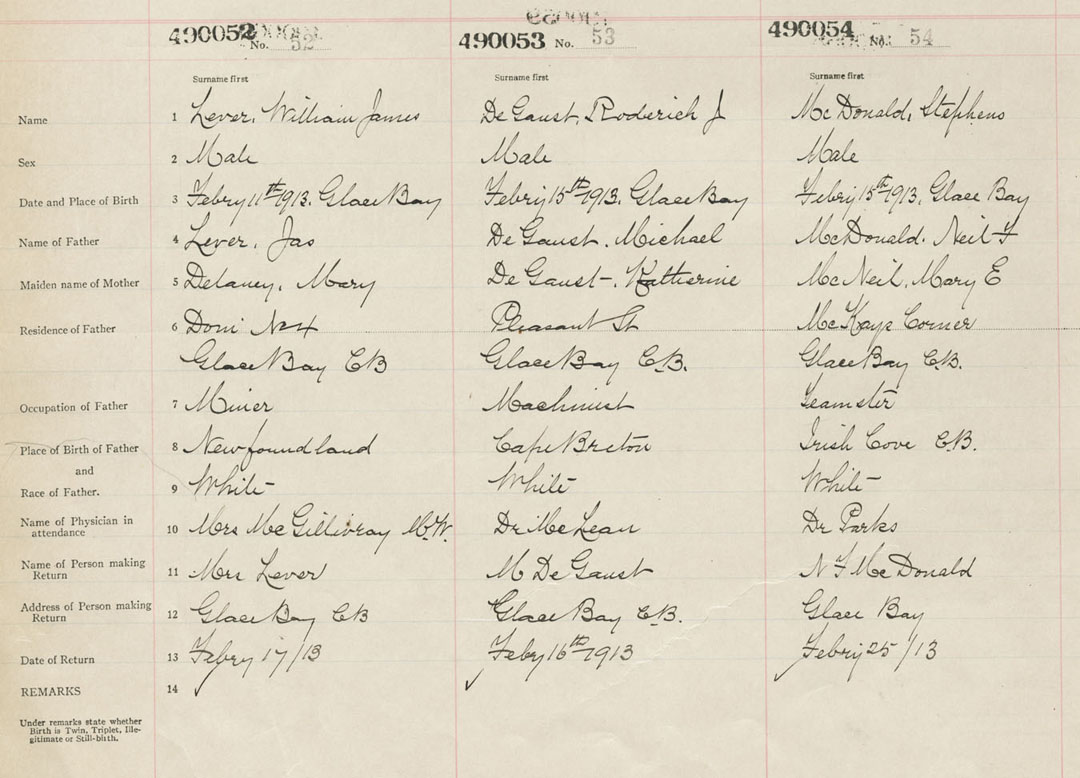 490052 No. 52 490053 No. 53 490054 No. 54
Surname first Surname first Surname first
Name 1 Lever, William James De Gaust, Roderich J McDonald, Stephens
Sex 2 Male Male Male
Date and Place of Birth 3 Febry 11th 1913. Glace Bay Febry 15th 1913. Glace Bay Febry 15th 1913, Glace Bay
Name of Father 4 Lever, Jas De Gaust, Michael McDonald. Neil F
Maiden name of Mother 5 Delaney, Mary De Gaust, Katherine McNeil, Mary E
Residence of Father 6 Domi No 4 Pleasant St McKays Corner
Glace Bay CB Glace Bay C.B. Glace Bay C.B.
Occupation of Father 7 Miner Machinist Teamster
Place of Birth of Father 8 Newfoundland Cape Breton Irish Cove C.B.
and
Race of Father. 9 White White White
Name of Physician in
attendance 10 Mrs McGillivray M.W. Dr McLean Dr Parks
Name of Person making
Return 11 Mrs Lever M De Gaust N F McDonald
Address of Person making
Return 12 Glace Bay CB Glace Bay C.B. Glace Bay
Date of Return 13 Febry 17/13 Feby 16th 1913 Febry 25/13
REMARKS 14
Under remarks state whether
Birth is Twin, Triplet, Ille-
gitimate or Still-birth.